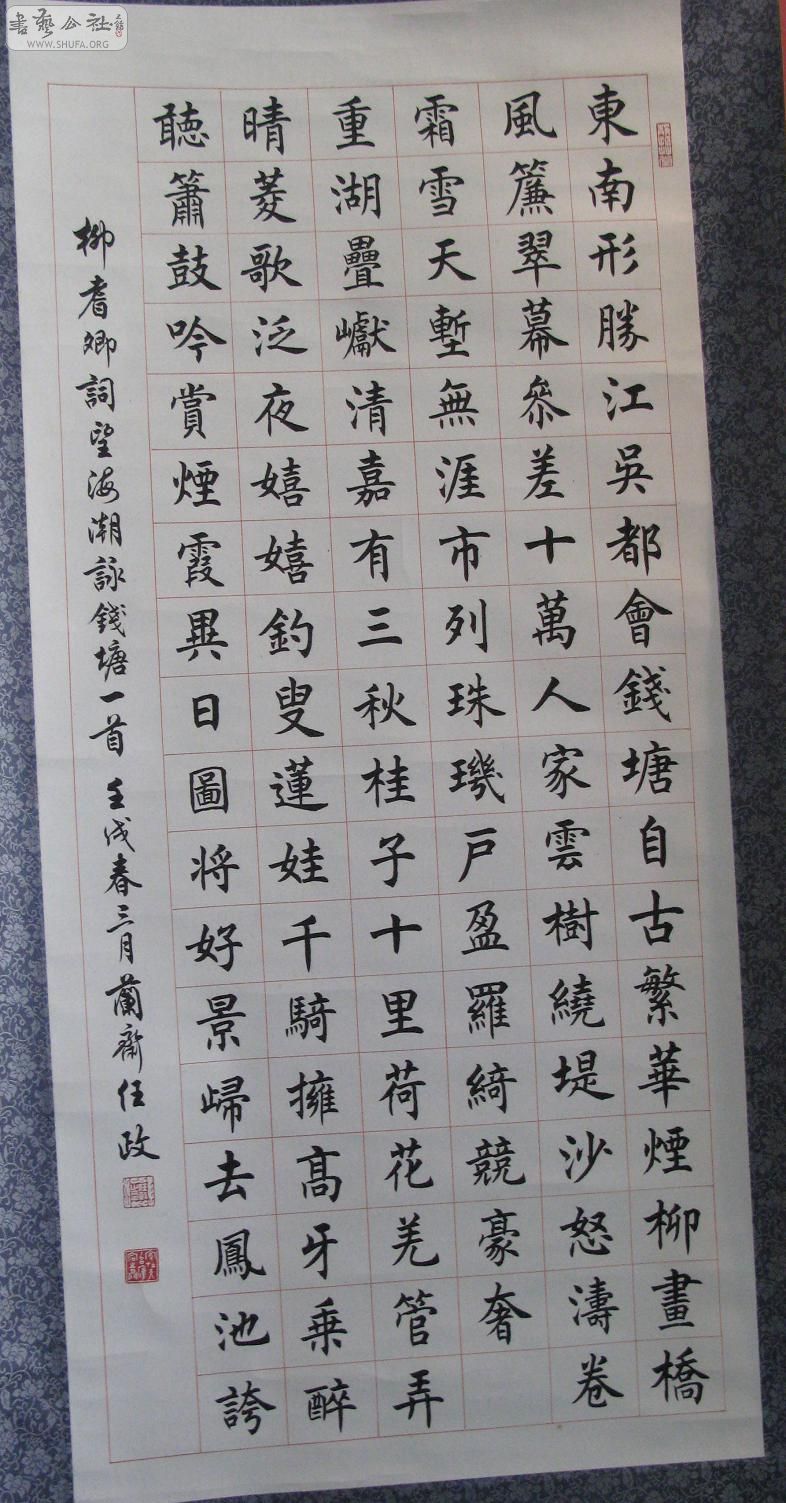 東南形勝江吳都會錢塘自古繁華煙柳畫橋
風簾翠幕叅差十萬人家雲樹繞堤沙怒濤卷
霜雪天塹無涯市列珠璣戶盈羅綺競豪奢
重湖疊巘清嘉有三秋桂子十里荷花羌管弄
晴菱歌泛夜嬉嬉釣叟蓮娃千騎擁高牙乘醉
聽簫鼓吟賞煙霞異日圖將好景歸去鳳池誇
柳耆卿詞望海潮詠錢塘一首 壬戌春三月蘭齋任政
書藝公社
WWW.SHUFA.ORG